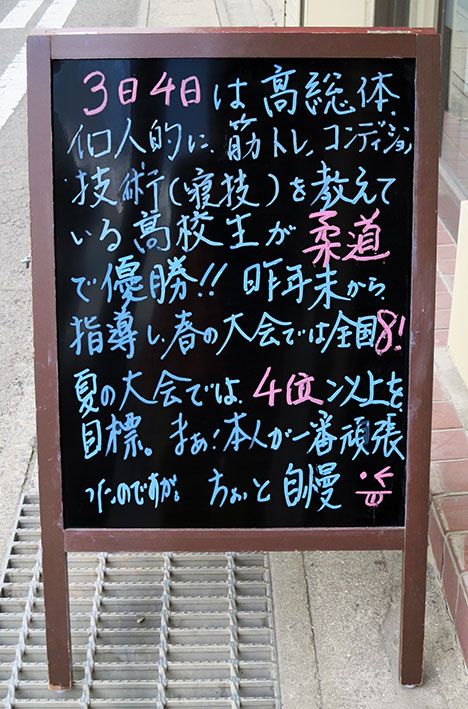 3日4日は高総体.
個人的に、筋トレ、コンディション
技術(寝技)を教えて
いる高校生が柔道
で優勝!! 昨年末から
指導し、春の大会では全国8!
夏の大会では、4位以上を
目標。まぁ!本人が一番頑張
ったのですが。ちょいと自慢